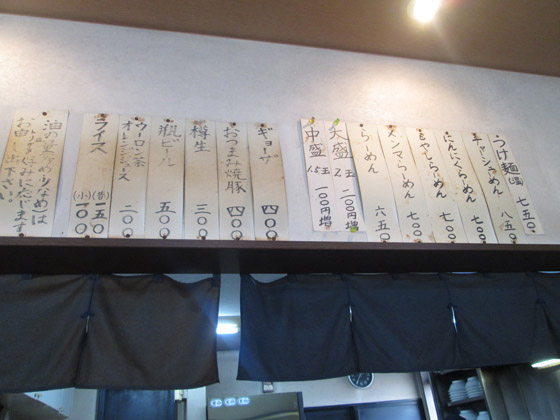 つけ麺(温) 七五〇
チャーシューめん 八五〇
にんにくらーめん 七〇〇
もやしらーめん 七〇〇
メンマらーめん 七〇〇
らーめん 六五〇
大盛 2玉 二〇〇円増
中盛 1.5玉 一〇〇円増
ギョーザ 四〇〇
おつまみ焼豚 四〇〇
樽生 三〇〇
瓶ビール 五〇〇
ウーロン茶
オーレンジジュース 二〇〇
ライス (普) 一五〇 (小) 一〇〇
油の量(多め・少なめ)は
トッピング(ネギ込み)に応じます
お申し出下さい。